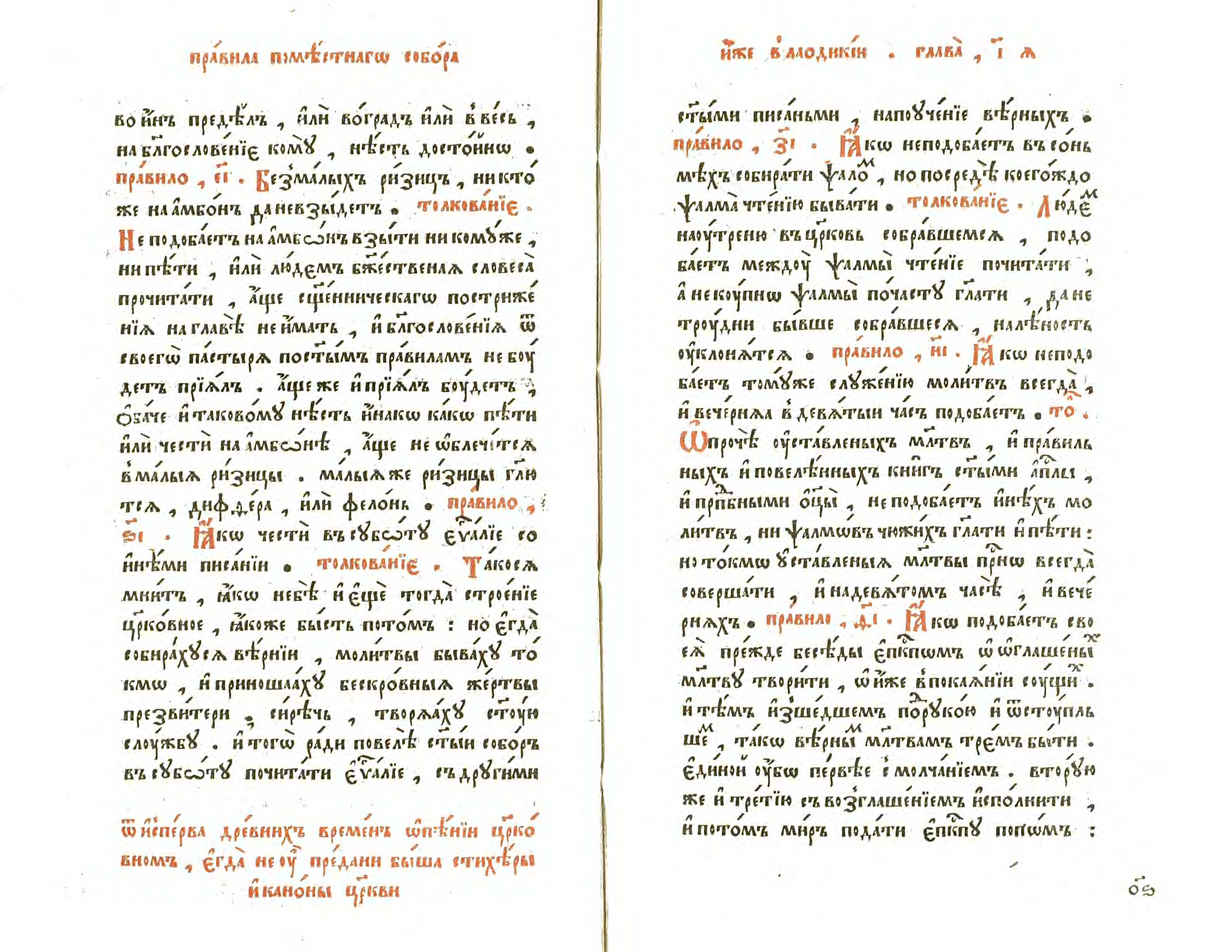 пра́вила помѣ́стнагѡ собо́ра
во и҆́нъ предѣ́лъ , и҆лѝ во́градъ и҆лѝ в҆ ве́сь ,
на бл҃гослове́нїє комꙋ̀ , нѣ́сть досто́йно .
пра́вило , є҃і . Без̾ма́лыхъ ри́зицъ , никто
же на а҆мбо́нъ да не взы́детъ . толкова́нїє .
Не подоба́етъ на а҆мбѡ́нъ взы́ти ни комꙋ́же ,
ни пѣ́ти , и҆лѝ лю́демъ бж҃ественаѧ словеса̀
прочита́ти , а҆́ще сщ҃е́нническагѡ постриже́
нїѧ на главѣ̀ не и҆́мать , и҆ бл҃гослове́нїѧ ѿ
своегѡ̀ па́стырѧ по ст҃ы́мъ пра́виламъ не бꙋ́
детъ прїѧ́лъ . а҆́ще же и҆ прїѧ́лъ бꙋ́детъ ,
ѻ҆ба́че и҆ таково́мꙋ нѣ́сть и҆́накѡ ка́кѡ пѣ́ти
и҆лѝ честѝ на а҆мбѡ́нѣ , а҆́ще не ѡ҆блечи́тсѧ
в҆ ма́лыѧ ри́зицы . ма́лыѧ же ри́зицы гл҃ю
тсѧ , диффе́ра , и҆лѝ фело́нь . пра́вило ,
ѕ҃і . Ꙗ҆́кѡ чести̇̀ въ сꙋбѡ́тꙋ є҆ѵⷢ҇а́лїє со
и҆нѣ́ми писа́нїи . толкова́нїє . Та́ко сѧ
мни́тъ , ꙗ҆́кѡ не бѣ̀ и҆ є҆щѐ тогда̀ строе́нїе
цр҃ко́вное , ꙗ҆́коже бы́сть пото́мъ : но є҆гда̀
собира́хꙋсѧ вѣ́рнїи , моли́твы быва́хꙋ то́
кмѡ , и҆ приноша́ахꙋ бескро́вныѧ же́ртвы
презви́тери , си́рѣчь , творѧ́ахꙋ ст҃ꙋ́ю
слꙋ́жбꙋ . и҆ тогѡ̀ ра́ди повелѣ̀ ст҃ы́и собо́ръ
въ сꙋбѡ́тꙋ почита́ти є҆ѵⷢ҇а́лїе , съ дрꙋги́ми
ѿ и҆спе́рва дре́внихъ време́нъ ѡ҆ пѣ́нїи цр҃ко́
вномъ , є҆гда̀ не ᲂу҆̀ пре́дани бы́ша стихѣ́ры
и҆ кано́ны цр҃кви
и҆́же в҆ лаодикі́и . глава̀ , і҃ ꙗ
ст҃ы́ми писа́ньми , на поуче́нїе вѣ́рныхъ .
пра́вило , з҃і . Ꙗ҆́кѡ не подоба́етъ въ со́нь
мѣ́хъ собира́ти ѱало́ⷨ , но посредѣ̀ коего́ждо
ѱалма̀ чте́нїю быва́ти . толкова́нїє . Лю́деⷨ
на оу҆́треню въ цр҃ковь собра́вшемсѧ , подо
ба́етъ междоу̀ ѱалмы̀ чте́нїе почита́ти ,
а҆ не коу́пнѡ ѱалмы̀ по́частꙋ гл҃ати , да не
троу́дни бы́вше собра́вшеесѧ , на лѣ́ность
оу҆клонѧ́тсѧ . пра́вило , и҃і . Ꙗ҆́кѡ не подо
ба́етъ томꙋ́же слꙋже́нїю моли́твъ всегда̀ ,
и҆ вече́рнѧа в҆ девѧ́тыи ча́съ подоба́етъ . то̑ .
Ѡ҆ про́чѣ оу҆ста́вленыхъ мл҃твъ , и҆ пра́виль
ныхъ и҆ повелѣ́нныхъ кни́гъ ст҃ы́ми а҆пⷭ҇лы ,
и҆ прпⷣбными ѻ҆ц҃ы̀ , не подоба́етъ и҆нѣ́хъ мо
ли́твъ , ни ѱалмѡ́въ чюжи́хъ гл҃ати и҆ пѣ́ти :
но то́кмѡ ᲂу҆ста́вленыѧ мл҃твы при́снѡ всегда̀
соверша́ти , и҆ на девѧ́томъ часѣ̀ , и҆ вече́
рнѧхъ . пра́вило , ѳ҃і . Ꙗ҆́кѡ подоба́етъ сво
еѧ̀ пре́жде бесѣ́ды є҆пⷭ҇кпѡмъ ѡ҆ ѡ҆глаше́ныⷯ
мл҃твꙋ твори́ти , ѡ҆ и҆́же в҆ покаѧ́нїи соу́щиⷯ .
и҆ тѣ́мъ и҆зше́дшемъ по́рꙋкою и҆ ѿстоу́пль
шеⷨ , та́кѡ вѣ́рныⷨ мл҃твамъ тре́мъ бы́ти .
є҆ди́ной оу҆́бѡ пе́рвѣе с҆ молча́нїемъ . втору́ю
же и҆ тре́тїю съ возглаше́нїемъ и҆спо́лнити ,
и҆ пото́мъ ми́ръ пода́ти є҆пⷭ҇кпꙋ попѡ́мъ :
о҃ѕ